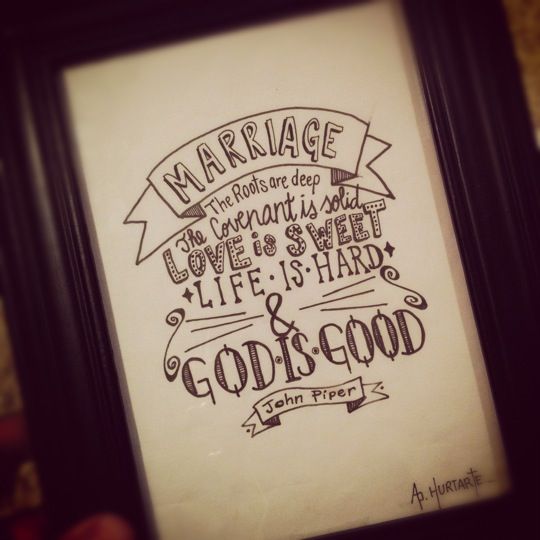 MARRIAGE
The Roots are deep
The Covenant is solid
LOVE is SWEET
LIFE·IS·HARD
&
GOD·IS·GOOD
John Piper
AD. HURTARTE